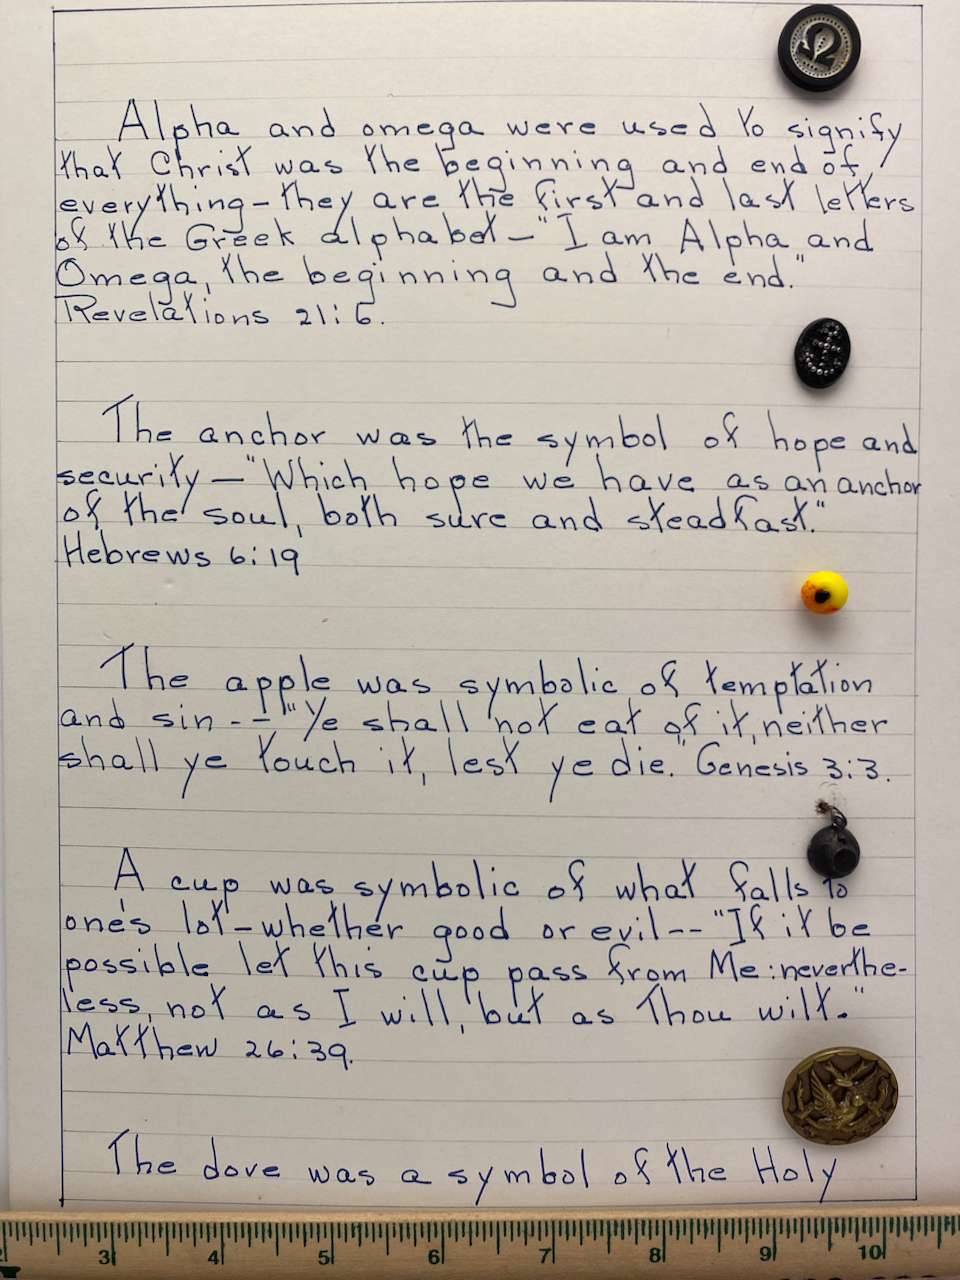 Ω
Alpha and omega were used to signify
that Christ was the beginning and end of
everything - they are the first and last letters
of the Greek alphabet - "I am Alpha and
Omega, the beginning and the end."
Revelations 21:6.
The anchor was the symbol of hope and
security - "Which hope we have as an anchor
of the soul, both sure and steadfast."
Hebrews 6:19
The apple was symbolic of temptation
and sin -- "Ye shall not eat of it, neither
shall ye touch it, lest ye die." Genesis 3:3.
A cup was symbolic of what falls to
one's lot - whether good or evil -- "If it be
possible let this cup pass from Me: neverthe-
less, not as I will, but as Thou wilt."
Matthew 26:39.
The dove was a symbol of the Holy
2 3 4 5 6 7 8 9 10